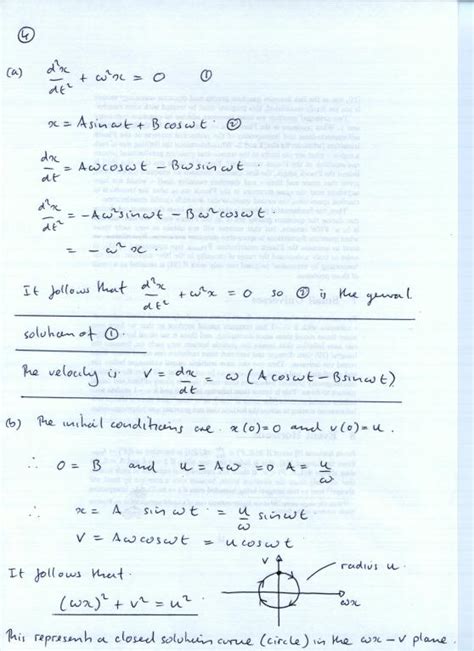 ④
(a) d²x/dt² + ω²x = 0 ①
x = A sin ωt + B cos ωt. ②
dx/dt = Aω cos ωt − Bω sin ωt.
d²x/dt² = −Aω² sin ωt − Bω² cos ωt.
= − ω² x.
It follows that d²x/dt² + ω²x = 0 so ② is the general
solution of ①.
The velocity is v = dx/dt = ω (A cos ωt − B sin ωt)
(b) The initial conditions are x(0)=0 and v(0)=u.
∴ 0 = B and u = Aω ⇒ A = u/ω
∴ x = A sin ωt = u/ω sin ωt
v = Aω cos ωt = u cos ωt
It follows that.
(ωx)² + v² = u²
v
radius u.
ωx
This represents a closed solution curve (circle) in the ωx − v plane.